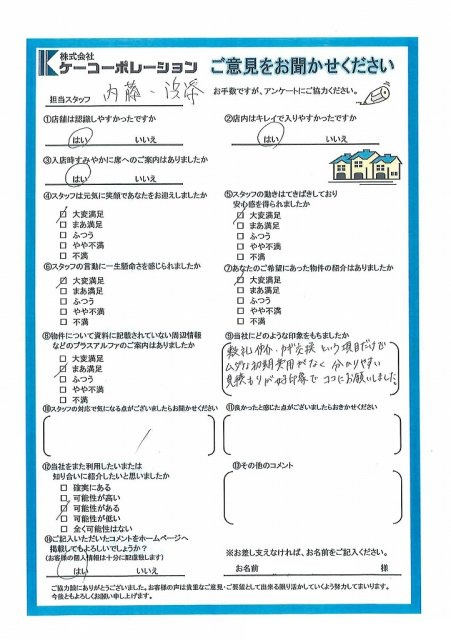 株式会社
ケーコーポレーション
ご意見をお聞かせください
担当スタッフ 内藤・
お手数ですが、アンケートにご協力ください。
①店舗は認識しやすかったですか
はい いいえ
②店内はキレイで入りやすかったですか
はい いいえ
③入店時すみやかに席へのご案内はありましたか
はい いいえ
④スタッフは元気に笑顔であなたをお迎えしましたか
□ 大変満足
□ まあ満足
□ ふつう
□ やや不満
□ 不満
⑤スタッフの動きはてきぱきしており
安心感を得られましたか
□ 大変満足
□ まあ満足
□ ふつう
□ やや不満
□ 不満
⑥スタッフの言動に一生懸命さを感じられましたか
□ 大変満足
□ まあ満足
□ ふつう
□ やや不満
□ 不満
⑦あなたのご希望にあった物件の紹介はありましたか
□ 大変満足
□ まあ満足
□ ふつう
□ やや不満
□ 不満
⑧物件について資料に記載されていない周辺情報
などのプラスアルファのご案内はありましたか
□ 大変満足
□ まあ満足
□ ふつう
□ やや不満
□ 不満
⑨当社にどのような印象をもちましたか
敷礼、仲介、カギ交換 という項目だけで
ムダな初期費用がなく 分かりやすい
見積もりが好印象で ココにお願いしました。
⑩スタッフの対応で気になる点がございましたらお聞かせください
⑪良かったと感じた点がございましたらおきかせください
⑫当社をまた利用したいまたは
知り合いに紹介したいと思いましたか
□ 確実にある
□ 可能性が高い
□ 可能性がある
□ 可能性が低い
□ 全く可能性はない
⑬その他のコメント
⑭ご記入いただいたコメントをホームページへ
掲載してもよろしいでしょうか？
(お客様の個人情報は十分に配慮致します)
はい いいえ
※お差し支えなければ、お名前をご記入ください。
お名前 様
ご協力誠にありがとうございました。お客様の声は貴重なご意見・ご要望として出来る限り活かしていくよう努力してまいります。
今後ともよろしくお願い申し上げます。